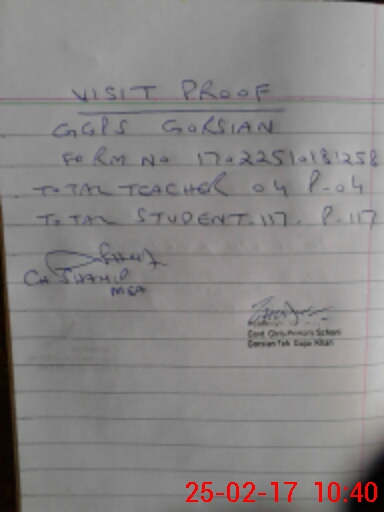 VISIT PROOF
GGPS GORSIAN
FORM NO 17022510181258
TOTAL TEACHER 04 P-04
TOTAL STUDENT.117. P.117
CH SHAHID
MEA
Govt Girls Primary School
Gorsian Teh Gujar Khan
25-02-17 10:40